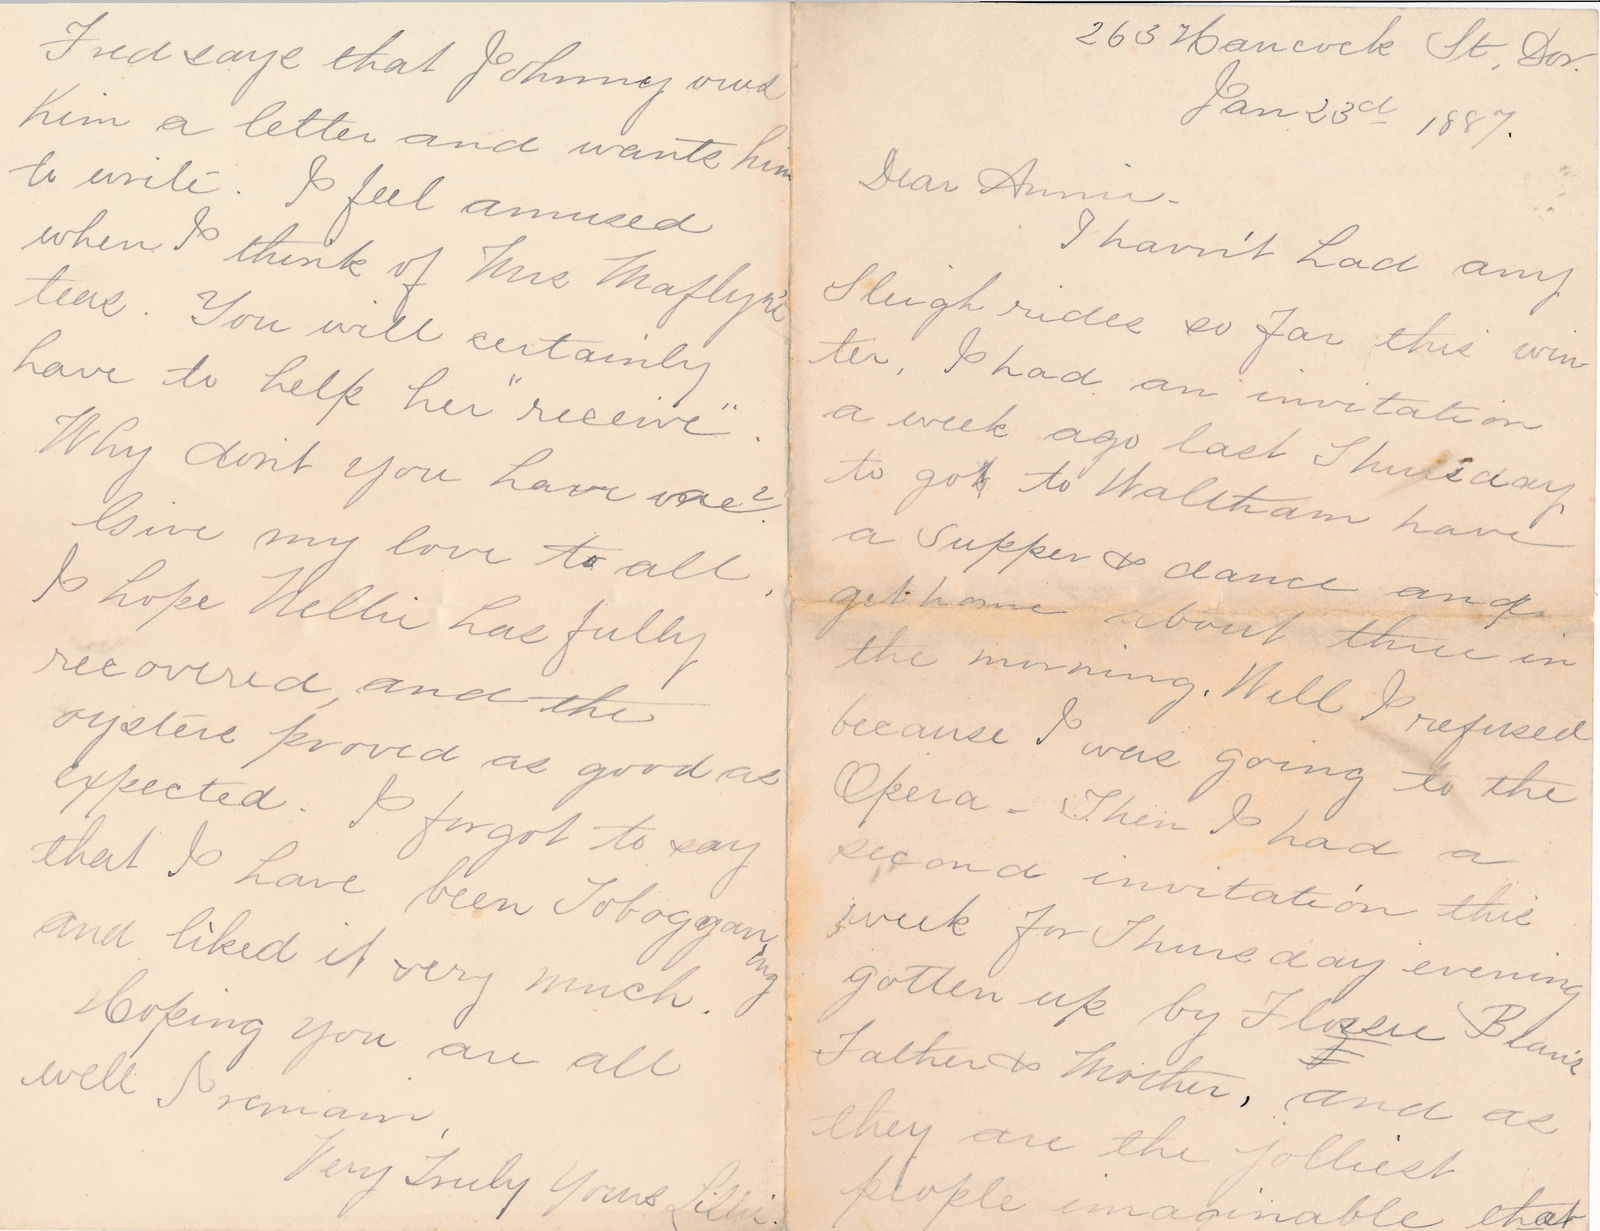 263 Hancock St, Dor.
Jan 23d 1887.
Dear Annie -
I havn't had any
Sleigh rides so far this win
ter, I had an invitation
a week ago last Thursday
to go to Waltham have
a Supper & dance and
get home about three in
the morning. Well I refused
because I was going to the
Opera - Then I had a
second invitation this
week for Thursday evening
gotten up by Flossie Blair's
Father & Mother, and as
they are the jolliest
people imaginable that
Fred says that Johnny owes
him a letter and wants him
to write. I feel amused
when I think of Mrs Maflyn's
teas. You will certainly
have to help her "receive".
Why don't you have one?
Give my love to all,
I hope Nellie has fully
recovered, and the
oysters proved as good as
expected. I forgot to say
that I have been Toboggan
ing
and liked it very much.
Hoping you are all
well I remain,
Very Truly Yours Lillie.